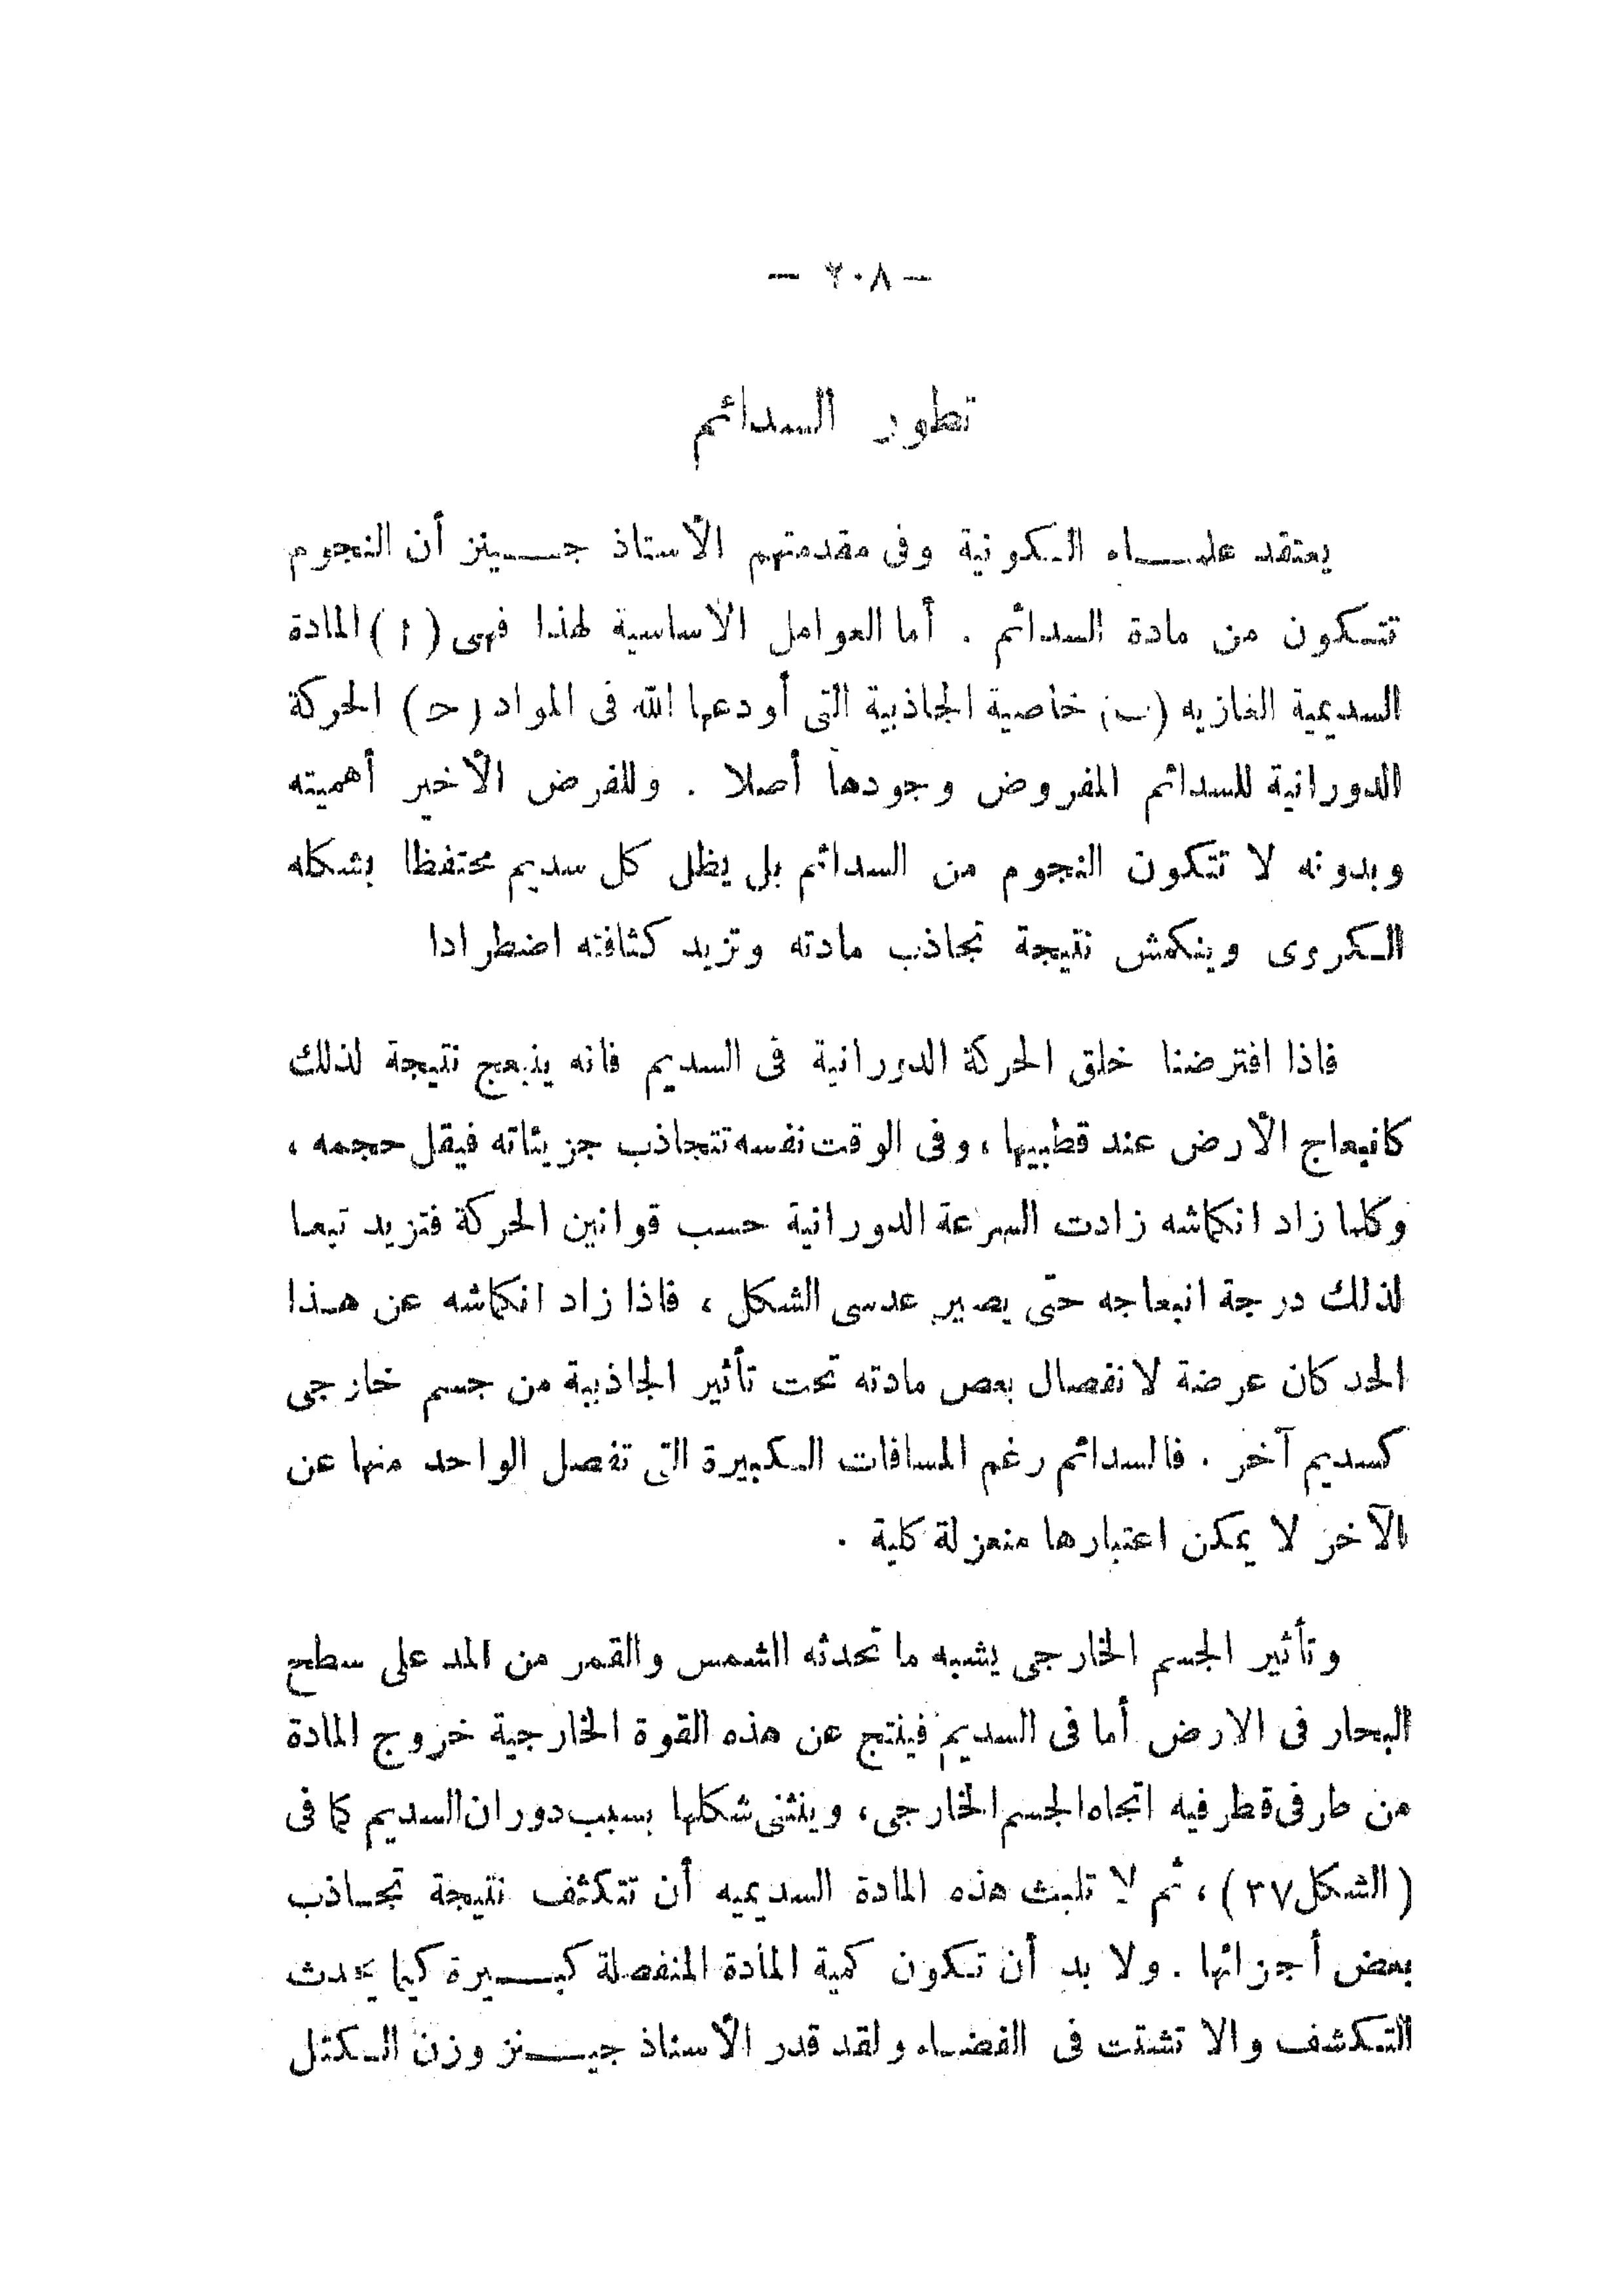 — ٢٠٨ —
تطور السدائم
يعتقد علماء الكونية وفى مقدمتهم الأستاذ جينز أن النجوم
تتكون من مادة السدائم . أما العوامل الأساسية لهذا فهى ( ا ) المادة
السديمية الغازيه (ب) خاصية الجاذبية التى أودعها الله فى المواد (ح) الحركة
الدورانية للسدائم المفروض وجودها أصلا . وللفرض الأخير أهميته
وبدونه لا تتكون النجوم من السدائم بل يظل كل سديم محتفظا بشكله
الكروى وينكمش نتيجة تجاذب مادته وتزيد كثافته اضطرادا
فاذا افترضنا خلق الحركة الدورانية فى السديم فانه ينبعج نتيجة لذلك
كانبعاج الأرض عند قطبيها ، وفى الوقت نفسه تتجاذب جزيئاته فيقل حجمه ،
وكلما زاد انكماشه زادت السرعة الدورانية حسب قوانين الحركة فتزيد تبعا
لذلك درجة انبعاجه حتى يصير عدسى الشكل ، فاذا زاد انكماشه عن هذا
الحد كان عرضة لانفصال بعض مادته تحت تأثير الجاذبية من جسم خارجى
كسديم آخر . فالسدائم رغم المسافات الكبيرة التى تفصل الواحد منها عن
الآخر لا يمكن اعتبارها منعزلة كلية .
وتأثير الجسم الخارجى يشبه ما تحدثه الشمس والقمر من المد على سطح
البحار فى الارض أما فى السديم فينتج عن هذه القوة الخارجية خروج المادة
من طرفى قطر فيه اتجاه الجسم الخارجى ، وينثنى شكلها بسبب دوران السديم كما فى
(الشكل ٣٧) ، ثم لا تلبث هذه المادة السديميه أن تتكثف نتيجة تجاذب
بعض أجزائها . ولا بد أن تكون كمية المادة المنفصلة كبيرة كيما يحدث
التكشف والا تشتت فى الفضاء ولقد قدر الأستاذ جينز وزن الكتل